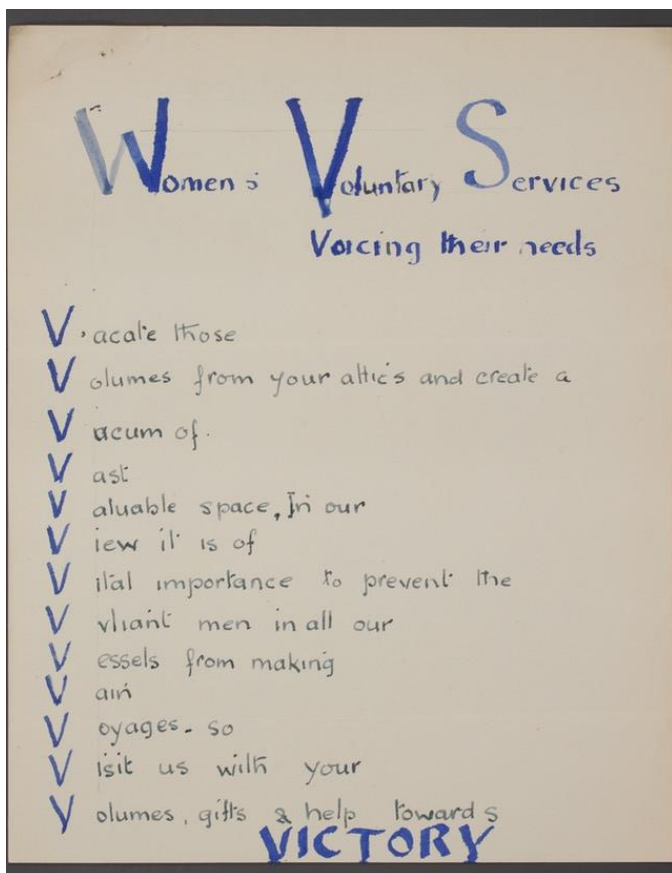 Women's Voluntary Services
Voicing their needs
V.acate those
Volumes from your attic's and create a
Vacum of.
Vast
Valuable space, In our
View it is of
Vital importance to prevent the
Vvliant men in all our
Vessels from making
Vain
Voyages. so
Visit us with your
Volumes, gifts & help towards
VICTORY